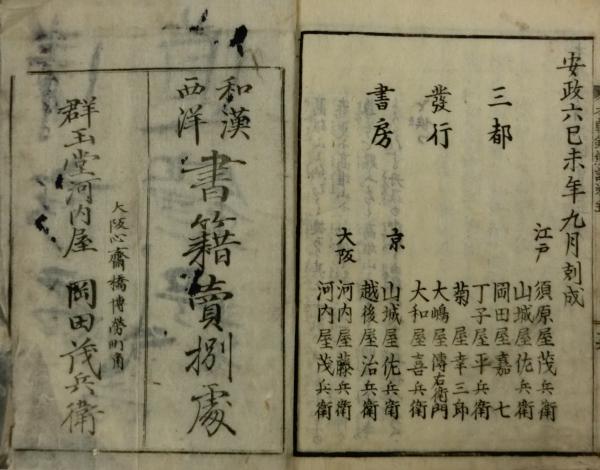 安政六己未年九月刻成
三都
發行
書房
江戸
須原屋茂兵衛
山城屋佐兵衛
岡田屋嘉七
丁子屋平兵衛
菊屋幸三郎
大嶋屋傳右衛門
大和屋喜兵衛
京
山城屋佐兵衛
越後屋治兵衛
大阪
河内屋藤兵衛
河内屋茂兵衛
和漢
西洋
書籍賣捌處
大阪心齋橋博勞町角
群玉堂河内屋 岡田茂兵衛